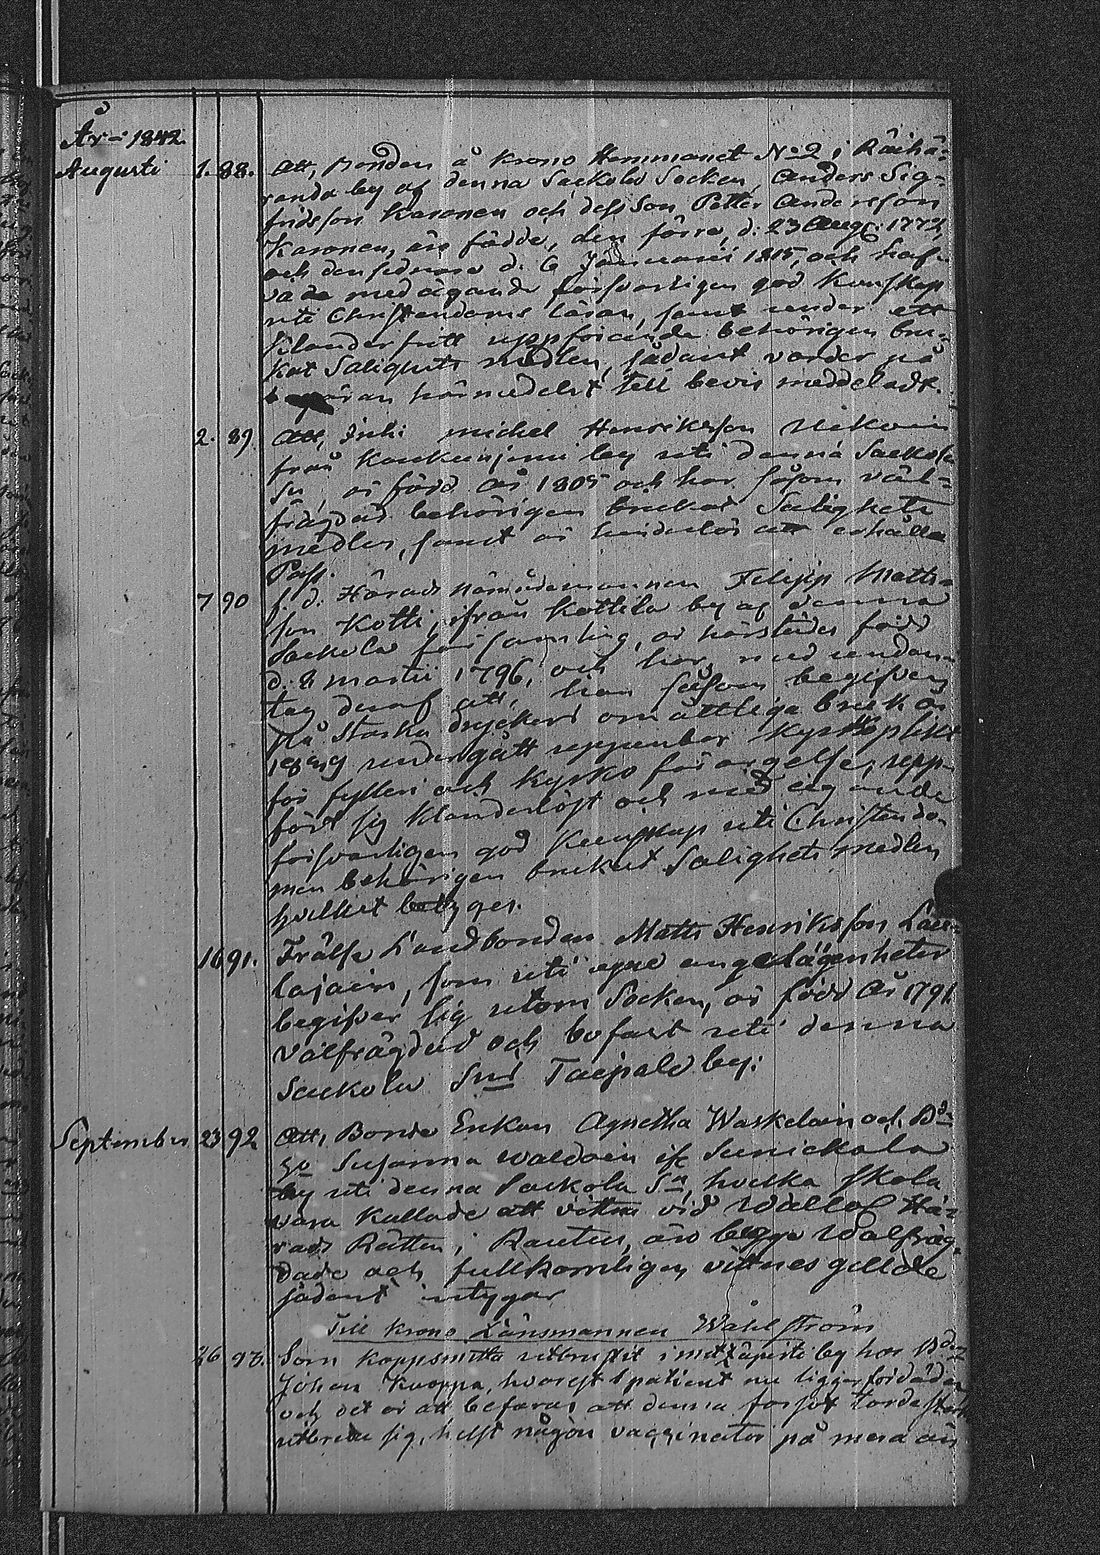 År 1842.
Augusti 1. 88. Att, Bonden å Krono Hemmanet No 2 i Räihä-
randa by af denna Sackola Socken, Anders Sig-
fridsson Karonen och dess Son Petter Andersson
Karonen, äro födde, den förre, d. 23 Aug. 1772,
och den sednare d. 6 Januarii 1815, och haf-
va de med ägande försvarligen god Kunskap
uti Christendoms läran, samt under ett
Klanderfritt uppförande behörigen bru-
kat Salighets medlen, sådant varder på
begäran härmedelst till bevis meddeladt.
2. 89. Att, Inh: Michel Henriksson
från by uti denna Sackola
Sn, är född år 1805 och har såsom väl-
frägdad behörigen brukat Salighets
medlen, samt är hinderlös att erhålla
Pass.
7 90 f. d. Härads Nämndemannen Filipp Matts-
son Kotti, ifrån Kottila by af denna
Sackola församling, är härstädes född
d. 8 Martii 1796, och har, med undan-
tag deraf att, han såsom begifven
på Starka dryckers omåttliga bruk år
undergått uppenbar Kyrkoplikt
för fylleri och Kyrko förargelse, upp-
fört sig Klanderlöst och med ägande
försvarligen god Kunskap uti Christendo-
men behörigen brukat Salighets medlen
hvilket betyges.
16 91. Frälse Landbonden Matts Henriksson Lau-
lajain, som uti egne angelägenheter
begifver sig utom Socken, är född År 1791.
välfrägdad och bofast uti denna
Sackola Sns Taipale by.
September 23 92 Att, Bonde Enkan Agnetha Waskelain och Bde
Susanna Waldain if Sunickala
by uti denna Sackola Sn, hvilka skola
vara Kallade att vittna vid Wällof. Hä-
rads Rätten i Rautus, äro begge Walfräg-
dade och fullkomligen vittnesgillde
sådant intygar
Till Krono Länsmannen Wahlström
26 93. Som Koppsmitta utbrustit i by hos Bden
Johan Kuoppa, hvarest 1 patient nu ligger
och det är att befaras att denna farsot torde
utbreda sig, helst någon vaccinator på mera än